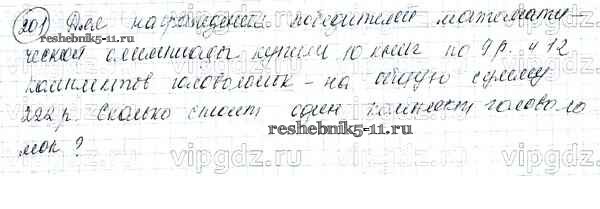 201 Для награждения победителей математи-
ческой олимпиады купили 10 книг по 9 р. и 12
комплектов головоломок - на общую сумму
222 р. Сколько стоит один комплект головоло
reshebnik5-11.ru
reshebnik5-11.ru
мок ?
vipgdz.ru vipgdz.ru vipgdz.ru